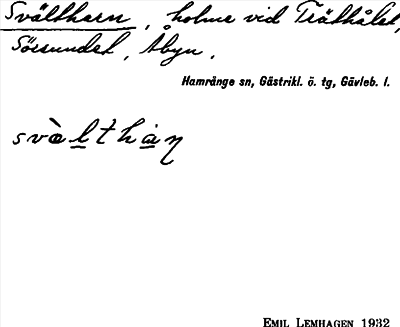 Svältharn, holme vid Träthålet,
Sörsundet, Åbyn.
Hamrånge sn, Gästrikl. ö. tg, Gävleb. l.
svàlthàn
EMIL LEMHAGEN 1932